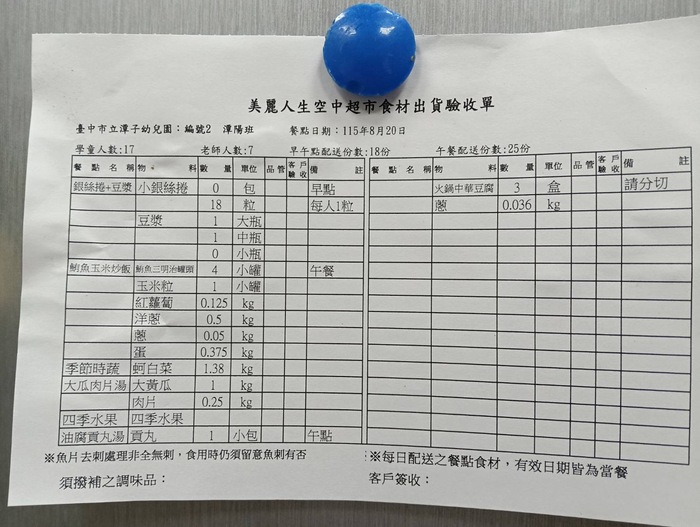 美麗人生空中超市食材出貨驗收單
臺中市立潭子幼兒園：編號2 潭陽班 餐點日期：115年8月20日
學童人數:17 老師人數:7 早午點配送份數:18份 午餐配送份數:25份
餐點名稱 物料 數量 單位 品管 客戶驗收 備註 餐點名稱 物料 數量 單位 品管 客戶驗收 備註
銀絲捲+豆漿 小銀絲捲 0 包 早點 火鍋中華豆腐 3 盒 請分切
18 粒 每人1粒 蔥 0.036 kg
豆漿 1 大瓶
1 中瓶
0 小瓶
鮪魚玉米炒飯 鮪魚三明治罐頭 4 小罐 午餐
玉米粒 1 小罐
紅蘿蔔 0.125 kg
洋蔥 0.5 kg
蔥 0.05 kg
蛋 0.375 kg
季節時蔬 蚵白菜 1.38 kg
大瓜肉片湯 大黃瓜 1 kg
肉片 0.25 kg
四季水果 四季水果
油腐貢丸湯 貢丸 1 小包 午點
※魚片去刺處理非全無刺，食用時仍須留意魚刺有否 ※每日配送之餐點食材，有效日期皆為當餐
須撥補之調味品： 客戶簽收：